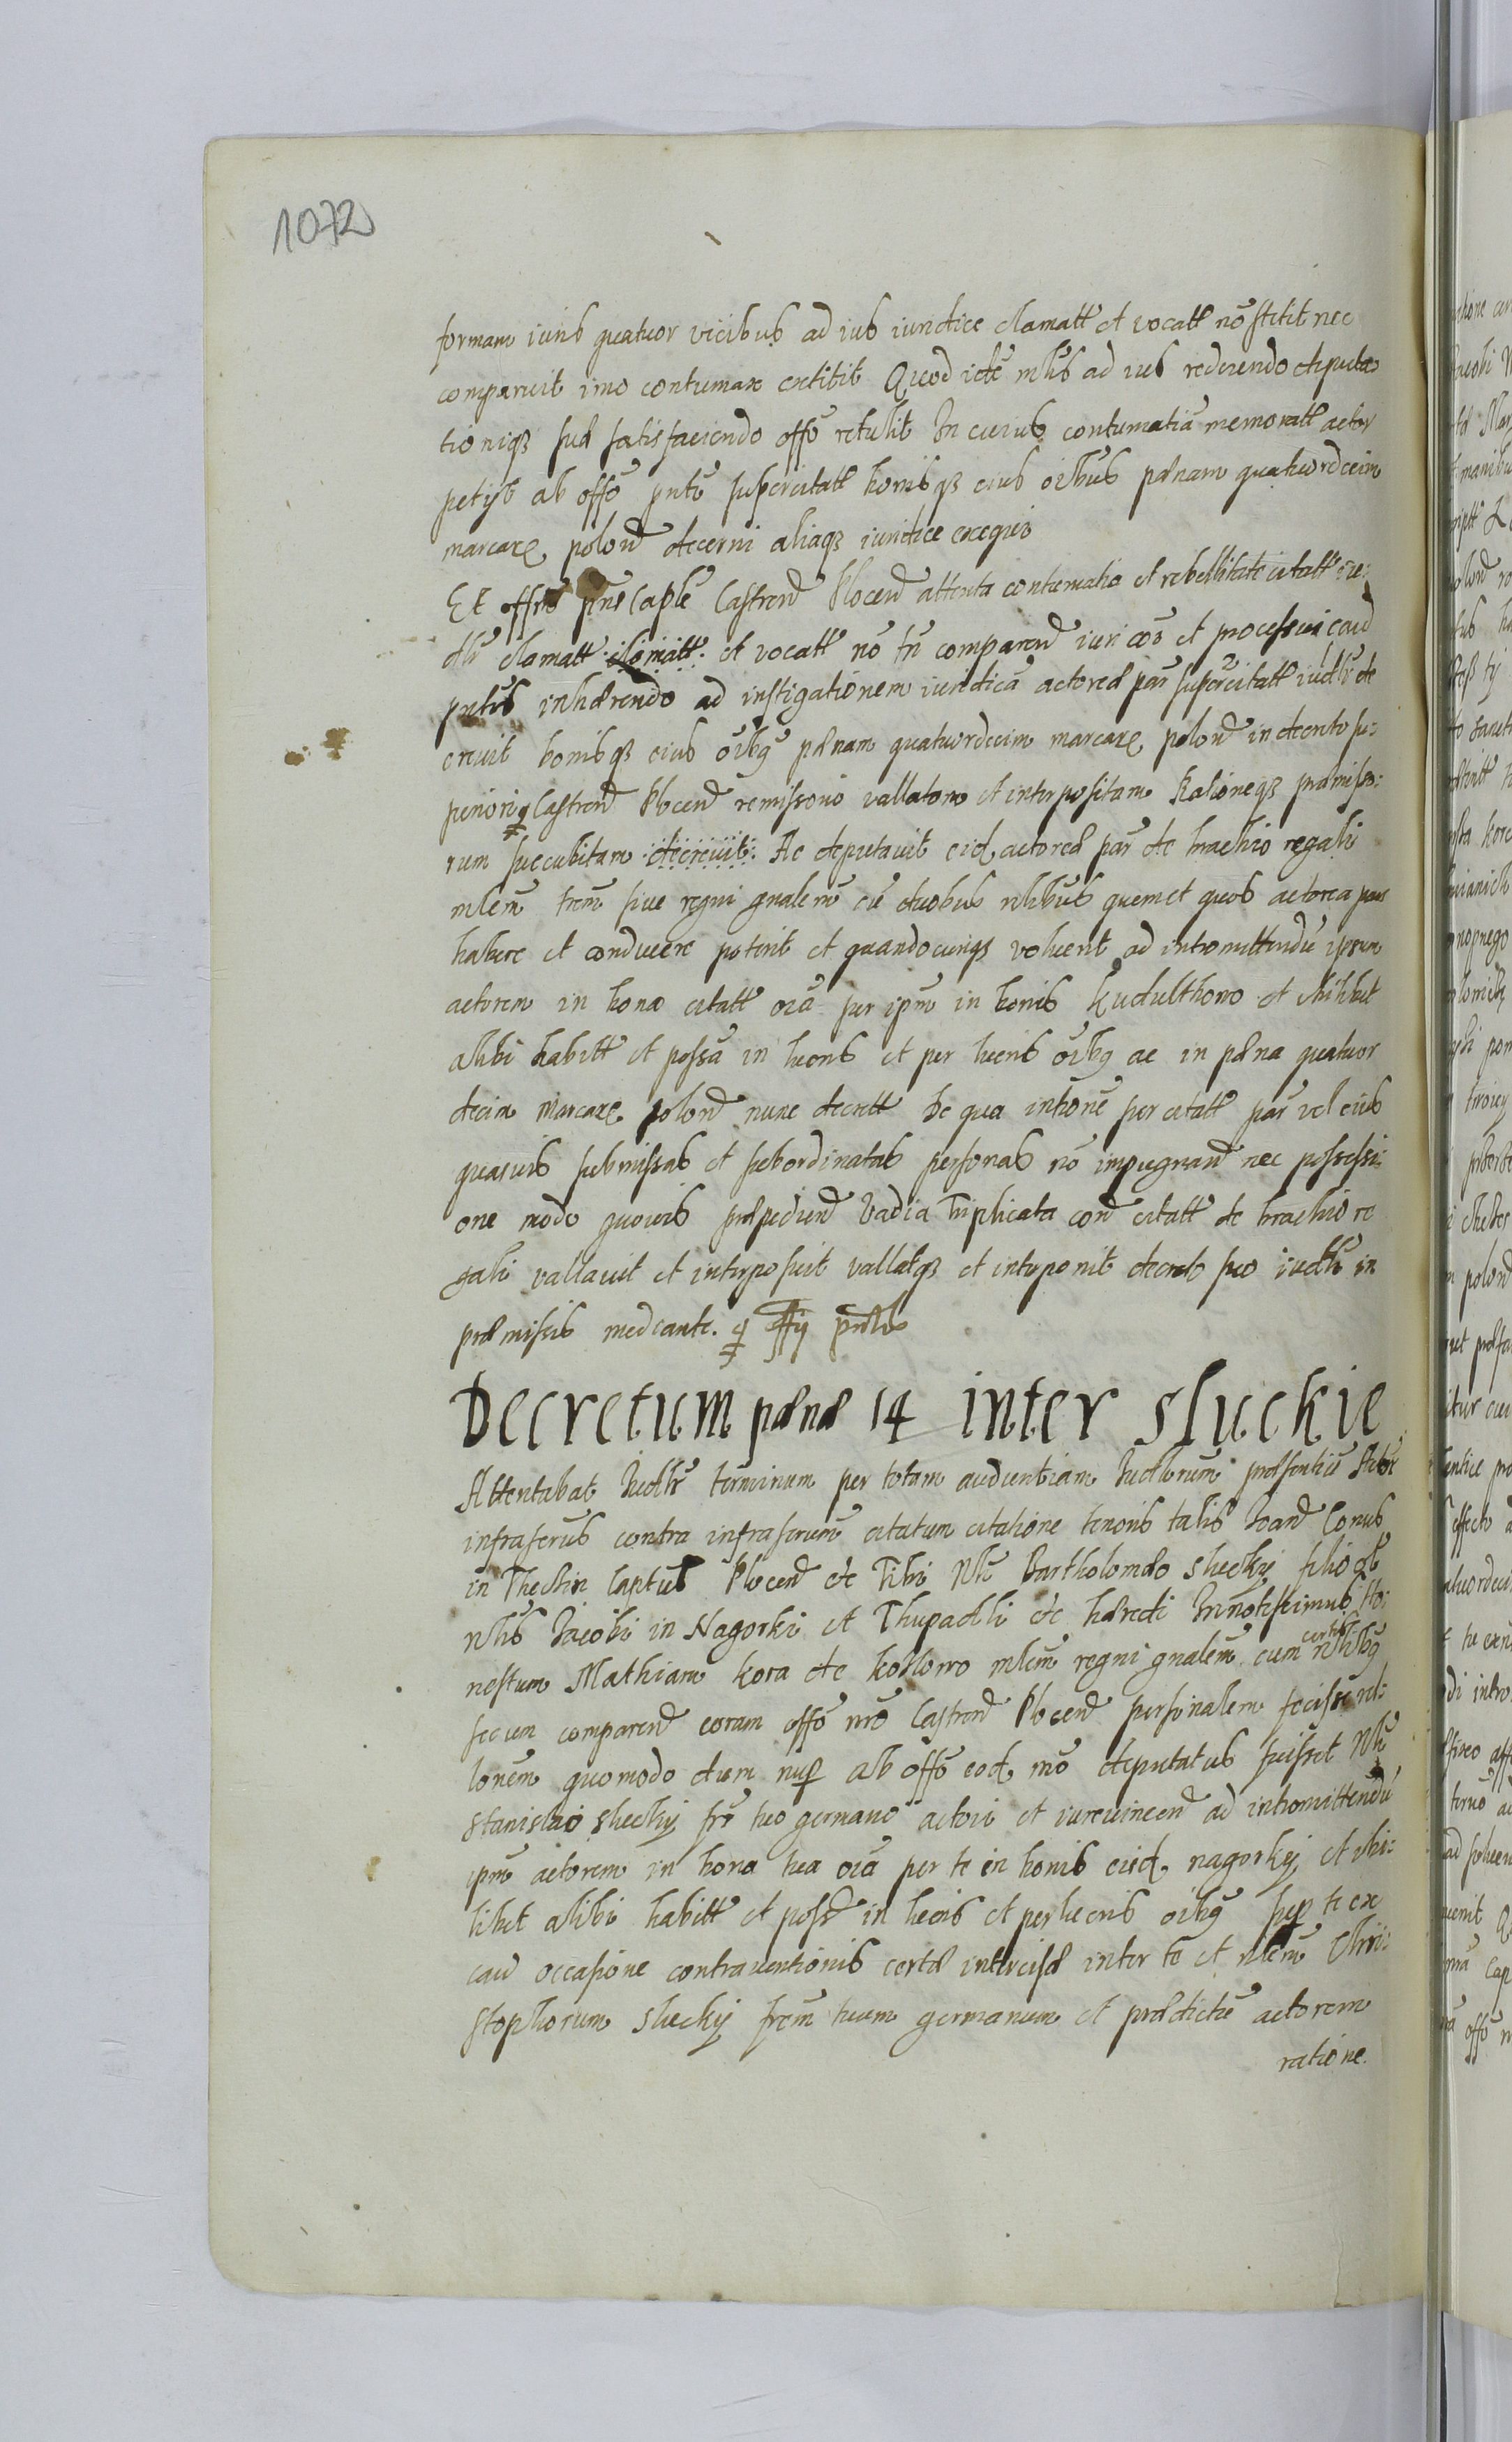 1072
formam iuris quatuor vicibus ad ius iuridice clamatt et vocatt nō stetit nec
comparuit imo contumax extitit Quod idē mlis ad ius redeundo deputa
tioniqз suæ satisfaciendo offō retulit In cuius contumatiā memoratt actor
petijt ab offō pntē super citatt bonisqз eius oībus pænam quatuordecim
marcarę polon decerni aliaqз iuridice exequi
Et offm pns Caple Castren Plocen attenta contumatia et rebellitate citatt iu:
dlr clamatt clamatt et vocatt nō tn comparen iuri cōi et processui caus
pntis inhærendo ad instigationem iuridicā actoreæ par super citatt iudlr de
crevit bonisqз eius oībg pænam quatuordecim marcarę polon in decreto su:
periori Castren Plocen remissorio vallatam et interpositam Rationeqз præmisso:
rum succubitam decrevit. Ac deputavit eid actoreæ par de brachio regali
mlem trem sive regni gnalem cū duobus nlibus quem et quos actorea pars
habere et conducere poterit et quandocunqз voluerit ad intromittendū ipsum
actorem in bona citatt oīa per ipm in bonis Kudultkowo et ubilibet
alibi habitt et possa in lucris et per lucris oībg ac in pæna quatuor
decim Marcarę polon nunc decrett De qua intione per citatt par vel eius
quasvis submissas et subordinatas personas nō impugnan nec possessi:
one modo quovis præpedien Vadia Triplicata con citatt de brachio re
gali vallavit et interposuit vallatqз et interponit decreto suo iudli in
præmissis mediante.
Decretum pænæ 14 inter Sluckie
Attentabat Iudlr terminum per totam audientiam Iudiorum præsentiū Actor
infrascrus contra infrascrum citatum citatione tenoris talis Ioan Conus
in Thechin Captus Plocen etc Tibi Nli Bartholomæo Slucky filio ol
nlis Iacobi in Nagorki et Thupadli etc hæredi Innotescimus Ho:
nestum Mathiam kora de kossowo mlem regni gnalem cum certis nlibg
secum comparen coram offō nrō Castren Plocen personalem fecisse rel:
lonem quomodo dum nup ab offō eod nrō deputatus fuisset Nli
Stanislao Slucky fri tuo germano actori et iurevincen ad intromittendū
ipm actorem in bona tua oīa per te in bonis eisd nagorky et ubi:
libet alibi habitt et poss in lucris et per lucris oībg sup te ex
caus occasione contraventionis certæ intercisæ inter te et nlem Chri:
stophorum Slucky frem tuum germanum et prædictū actorem
ratione